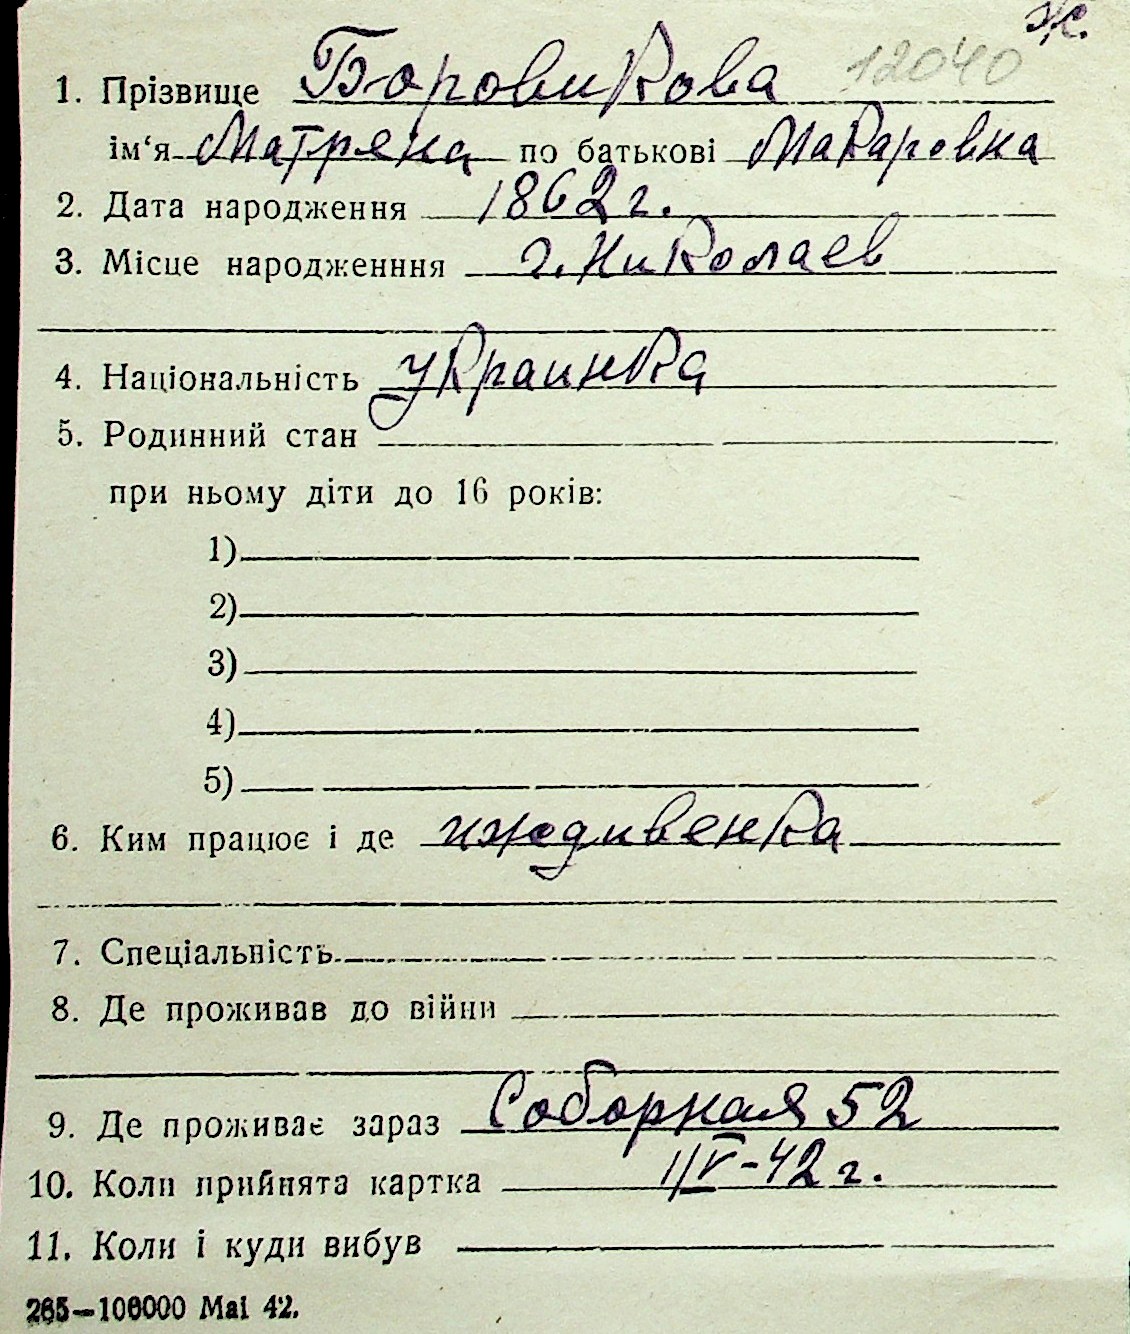 ж.
12040
1. Прізвище Боровикова
ім‘я Матряна по батькові Макаровна
2. Дата народження 1862 г.
3. Місце народженння г. Николаев
4. Національність украинка
5. Родинний стан
при ньому діти до 16 років:
1)
2)
3)
4)
5)
6. Ким працює і де иждивенка
7. Спеціальність
8. Де проживав до війни
9. Де проживає зараз Соборная 52
10. Коли прийнята картка 1/V-42 г.
11. Коли і куди вибув
265—100000 Mai 42.